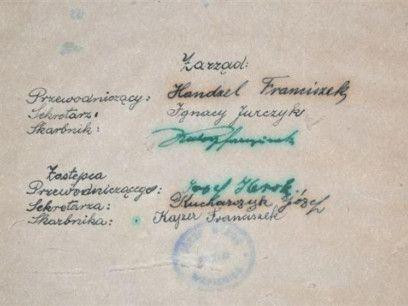 Zarząd:
Przewodniczący: Handzel Franciszek
Sekretarz: Ignacy Jurczyk
Skarbnik:
Zastępca
Przewodniczącego: Józef Herok
Sekretarza: Kucharczyk Józef
Skarbnika: Kajzer Franciszek